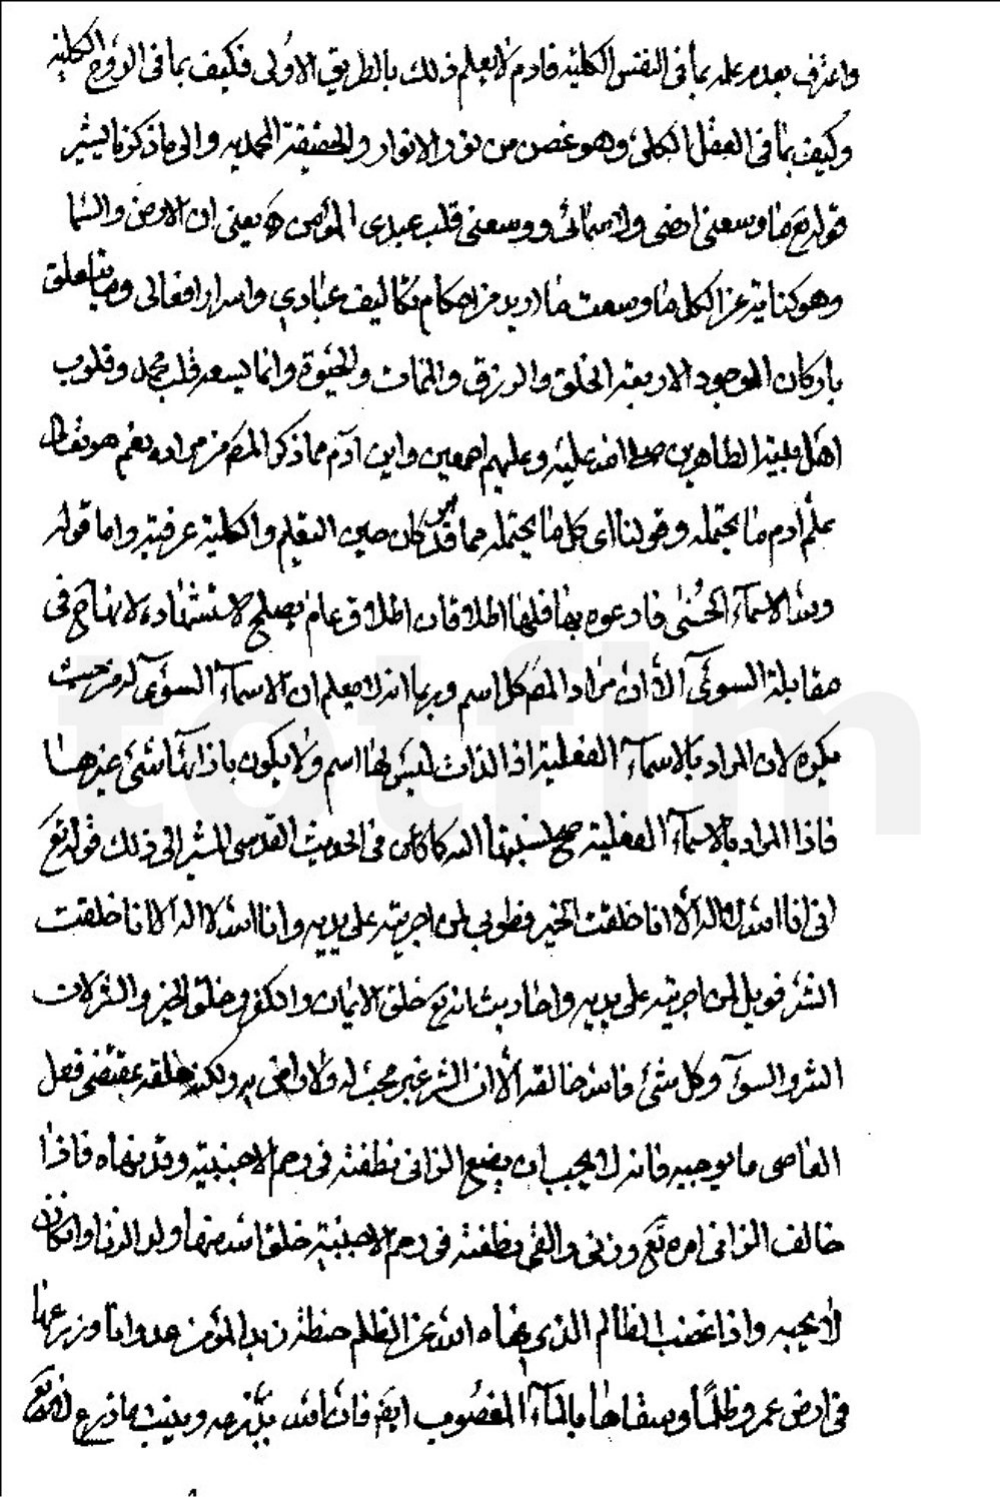 واعترف بعدم علمه بما فى النفس الكلية فادم لا يعلم ذلك بالطريق الاولى فكيف بما فى الروح الكلية
وكيف بما فى العقل الكلى وهو غصن من نور الانوار والحقيقة المحمديه والى ما ذكرنا يشير
قوله تع ما وسعنى ارضى ولا سمائى ووسعنى قلب عبدى المؤمن ه يعنى ان الارض والسما
وهو كناية عن الكل ما وسعت ما اريد من احكام تكاليف عبادي واسرار افعالى وما يتعلق
باركان الوجود الاربعة الخلق والرزق والممات والحيوة وانما يسعه قلب محمد وقلوب
اهل بيته الطاهرين صلى الله عليه وعليهم اجمعين واين ادم مما ذكر المص من مراده نعم هو تعالى
علم ادم ما يحتمله وقولنا اى كل ما يحتمله مما قد كان حين التعليم والكلية عرفية واما قوله
ولله الاسماء الحسنى فادعوه بها فلها اطلاقان اطلاق عام يصلح لاستشهاده لا
مقابلة السوئى الا ان مراد المص كل اسم وربما انه لا يعلم ان الاسماء السوئى له من حيث
مكروه لان المراد بالاسماء الفعلية اذ الذات ليس لها اسم ولا يكون باذائها شئ غيرها
فاذا المراد بالاسماء الفعلية صح نسبتها اليه كما كان فى الحديث القدسى المشير الى ذلك قوله تع
انى انا الله لا اله الا انا خلقت الخير فطوبى لمن اجريته على يديه وانا الله لا اله الا انا خلقت
الشر فويل لمن اجريته على يديه واحاديث انه تع خلق الايمان والكفر وخلق الخير والشر لان
الشر والسوء وكل شئ فالله خالقه الا ان الشر غير محب له ولا راض به ولكنه خلقه بمقتضى فعل
العاصى ما يوجبه فانه لا يحب ان يضع الزانى نطفته فى رحم الاجنبية وقد نهاه فاذا
خالف الزانى امره تع وزنى والقى نطفته فى رحم الاجنبية خلق الله منها ولد الزنا وان كان
لا يحبه واذا غصب الظالم الذى نهاه الله عن الظلم حنطة زيد المؤمن عدوانا وزرعها
فى ارض عمرو ظلمًا وسقاها بالماء المغصوب ايض فان الله وينبت ما زرع